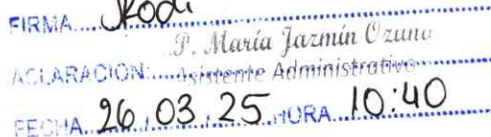 FIRMA....
P. María Jazmín Ozuna
ACLARACION:....Asistente Administrativo
FECHA..26.03.25.HORA..10:40